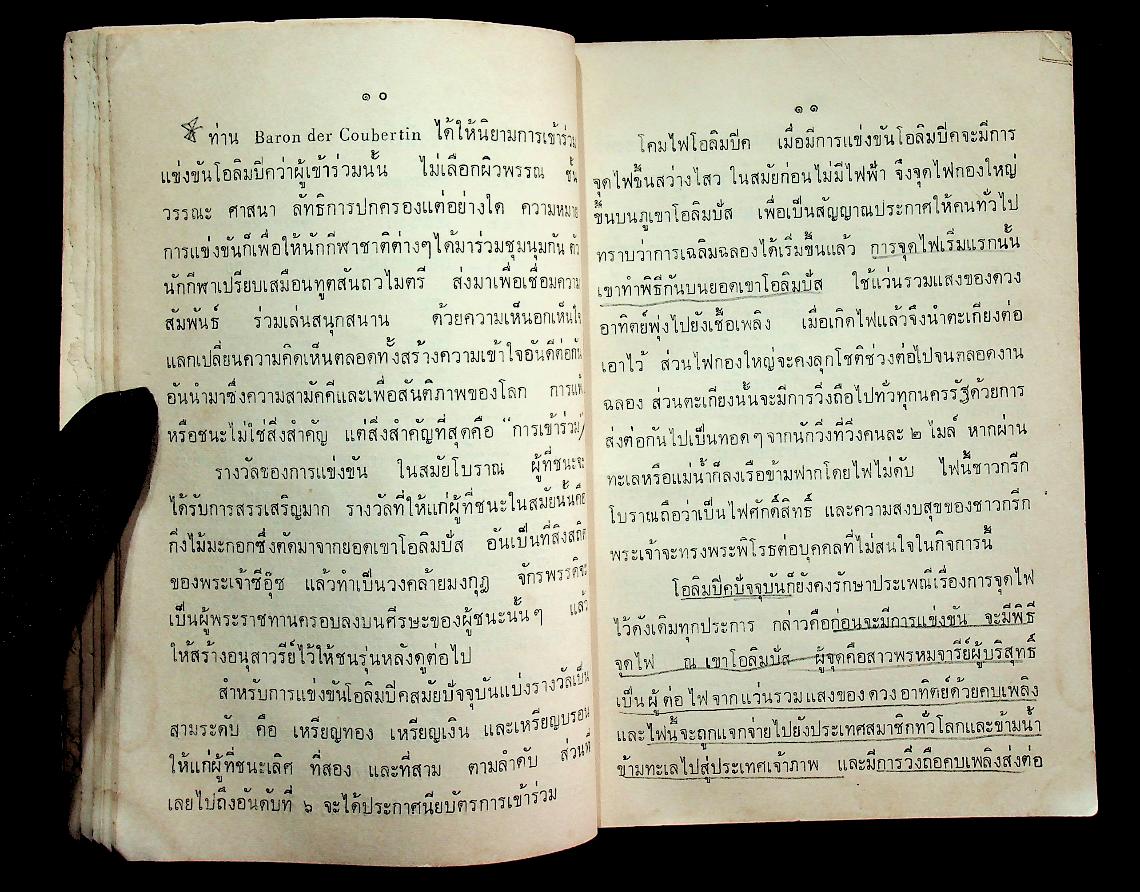 ๑๐
ท่าน Baron der Coubertin ได้ให้นิยามการเข้าร่วม
แข่งขันโอลิมปีคว่าผู้เข้าร่วมนั้น ไม่เลือกผิวพรรณ ชั้น
วรรณะ ศาสนา ลัทธิการปกครองแต่อย่างใด ความหมาย
การแข่งขันก็เพื่อให้นักกีฬาชาติต่างๆได้มาร่วมชุมนุมกัน ตัว
นักกีฬาเปรียบเสมือนทูตสันถวไมตรี ส่งมาเพื่อเชื่อมความ
สัมพันธ์ ร่วมเล่นสนุกสนาน ด้วยความเห็นอกเห็นใจ
แลกเปลี่ยนความคิดเห็นตลอดทั้งสร้างความเข้าใจอันดีต่อกัน
อันนำมาซึ่งความสามัคคีและเพื่อสันติภาพของโลก การแพ้
หรือชนะไม่ใช่สิ่งสำคัญ แต่สิ่งสำคัญที่สุดคือ “การเข้าร่วม”
รางวัลของการแข่งขัน ในสมัยโบราณ ผู้ที่ชนะจะ
ได้รับการสรรเสริญมาก รางวัลที่ให้แก่ผู้ที่ชนะในสมัยนั้นคือ
กิ่งไม้มะกอกซึ่งตัดมาจากยอดเขาโอลิมปัส อันเป็นที่สิงสถิต
ของพระเจ้าซีอุ๊ซ แล้วทำเป็นวงคล้ายมงกุฎ จักรพรรดิจะ
เป็นผู้พระราชทานครอบลงบนศีรษะของผู้ชนะนั้นๆ แล้ว
ให้สร้างอนุสาวรีย์ไว้ให้ชนรุ่นหลังดูต่อไป
สำหรับการแข่งขันโอลิมปีคสมัยปัจจุบันแบ่งรางวัลเป็น
สามระดับ คือ เหรียญทอง เหรียญเงิน และเหรียญบรอน
ให้แก่ผู้ที่ชนะเลิศ ที่สอง และที่สาม ตามลำดับ ส่วนที่
เลยไปถึงอันดับที่ ๖ จะได้ประกาศนียบัตรการเข้าร่วม
๑๑
โคมไฟโอลิมปีค เมื่อมีการแข่งขันโอลิมปีคจะมีการ
จุดไฟขึ้นสว่างไสว ในสมัยก่อนไม่มีไฟฟ้า จึงจุดไฟกองใหญ่
ขึ้นบนภูเขาโอลิมปัส เพื่อเป็นสัญญาณประกาศให้คนทั่วไป
ทราบว่าการเฉลิมฉลองได้เริ่มขึ้นแล้ว การจุดไฟเริ่มแรกนั้น
เขาทำพิธีกันบนยอดเขาโอลิมปัส ใช้แว่นรวมแสงของดวง
อาทิตย์พุ่งไปยังเชื้อเพลิง เมื่อเกิดไฟแล้วจึงนำตะเกียงต่อ
เอาไว้ ส่วนไฟกองใหญ่จะคงลุกโชติช่วงต่อไปจนตลอดงาน
ฉลอง ส่วนตะเกียงนั้นจะมีการวิ่งถือไปทั่วทุกนครรัฐด้วยการ
ส่งต่อกันไปเป็นทอดๆจากนักวิ่งที่วิ่งคนละ ๒ ไมล์ หากผ่าน
ทะเลหรือแม่น้ำก็ลงเรือข้ามฟากโดยไฟไม่ดับ ไฟนี้ชาวกรีก
โบราณถือว่าเป็นไฟศักดิ์สิทธิ์ และความสงบสุขของชาวกรีก
พระเจ้าจะทรงพระพิโรธต่อบุคคลที่ไม่สนใจในกิจการนี้
โอลิมปีคปัจจุบันก็ยังคงรักษาประเพณีเรื่องการจุดไฟ
ไว้ดังเดิมทุกประการ กล่าวคือก่อนจะมีการแข่งขัน จะมีพิธี
จุดไฟ ณ เขาโอลิมปัส ผู้จุดคือสาวพรหมจารีย์ผู้บริสุทธ์
เป็นผู้ต่อไฟจากแว่นรวมแสงของดวงอาทิตย์ด้วยคบเพลิง
และไฟนี้จะถูกแจกจ่ายไปยังประเทศสมาชิกทั่วโลกและข้ามน้ำ
ข้ามทะเลไปสู่ประเทศเจ้าภาพ และมีการวิ่งถือคบเพลิงส่งต่อ